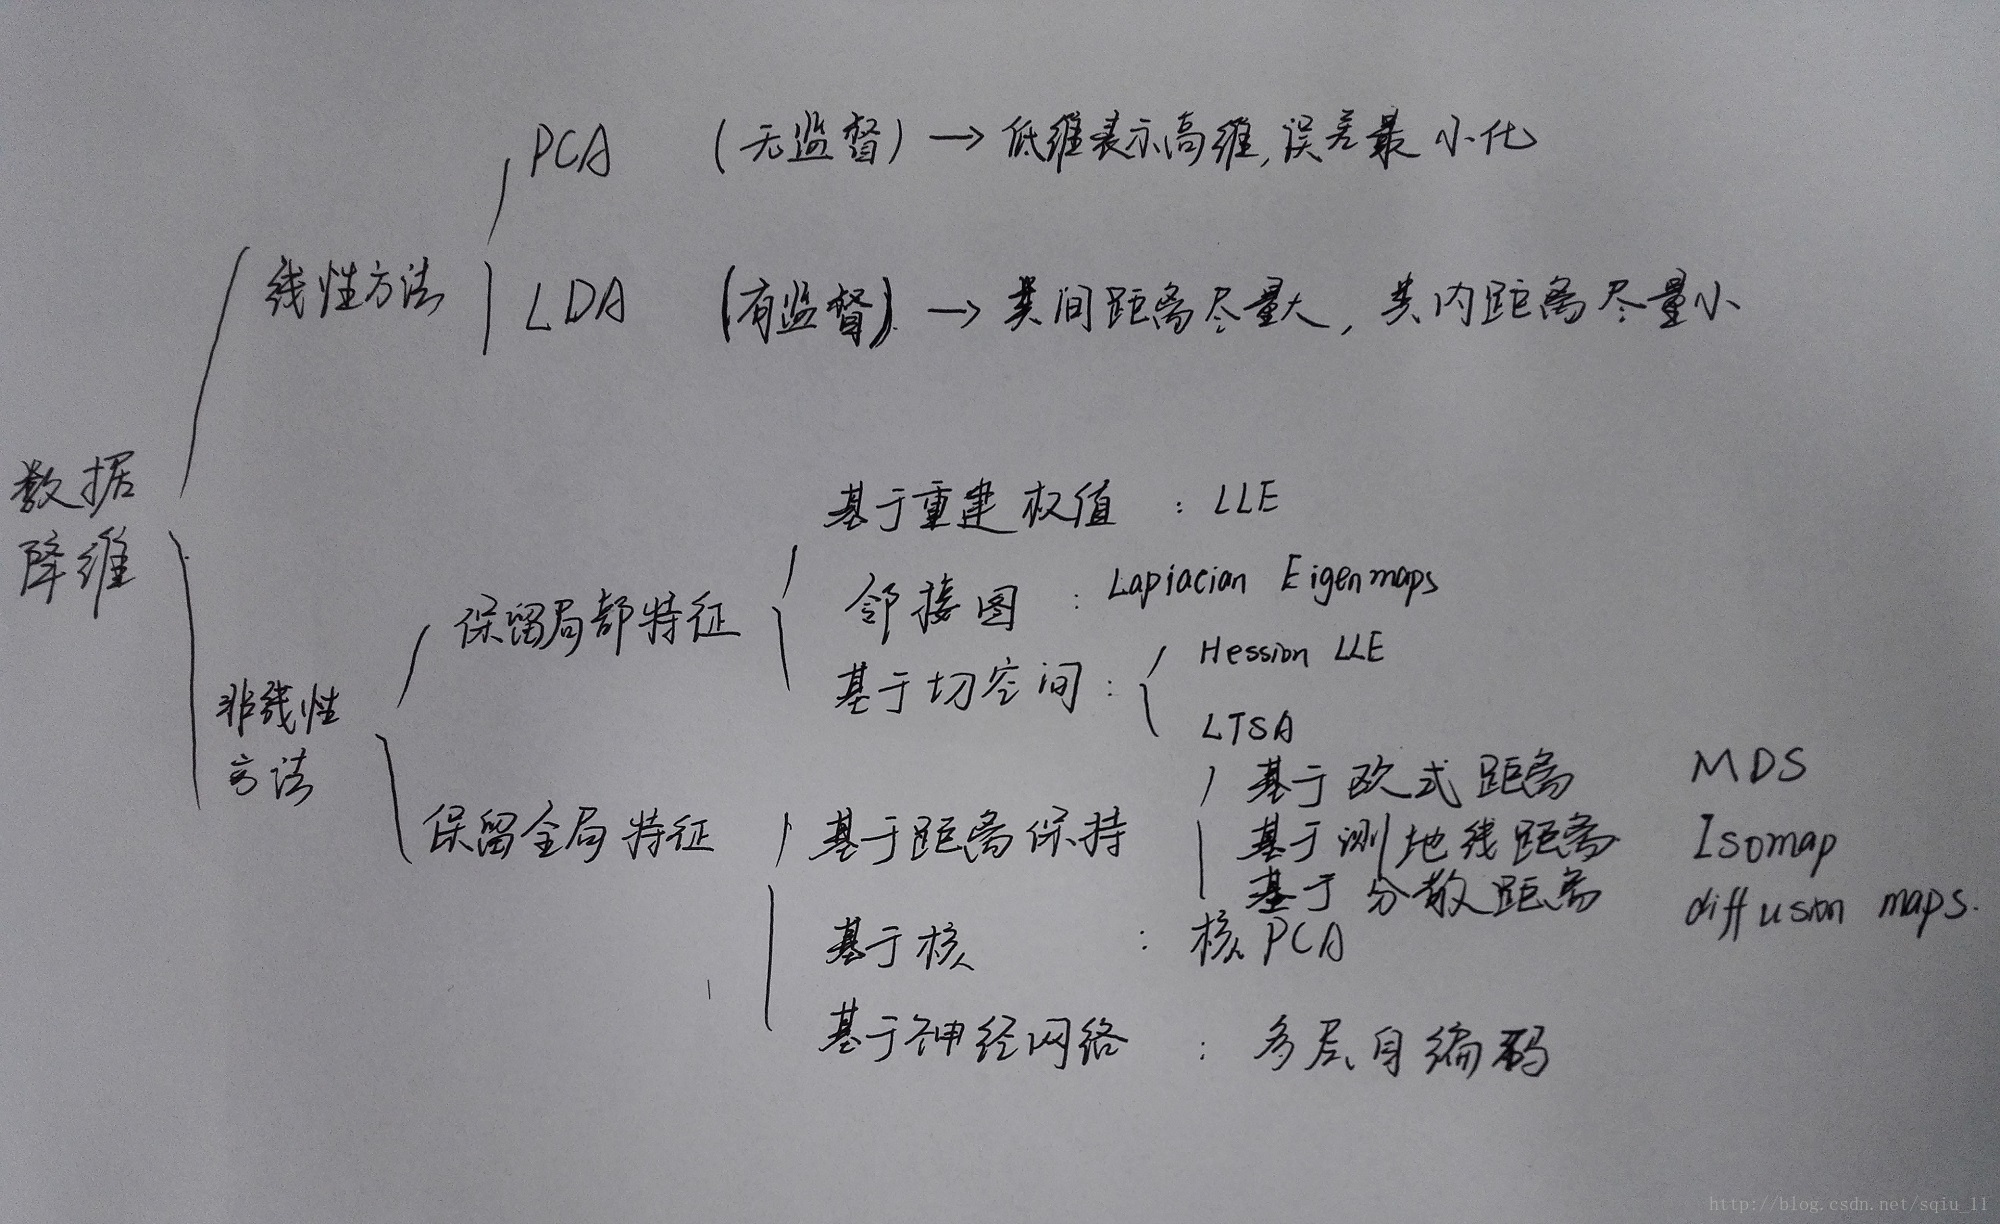 PCA (无监督) → 低维表示高维,误差最小化
线性方法
LDA (有监督) → 类间距离尽量大, 类内距离尽量小
数据
降维
基于重建权值 : LLE
邻接图 : Lapiacian Eigenmaps
保留局部特征
基于切空间 :
Hession LLE
LTSA
非线性
方法
保留全局特征
基于距离保持
基于欧式距离 MDS
基于测地线距离 Isomap
基于分散距离 diffusion maps.
基于核 : 核PCA
基于神经网络 : 多层自编码
http://blog.csdn.net/sqiu_11